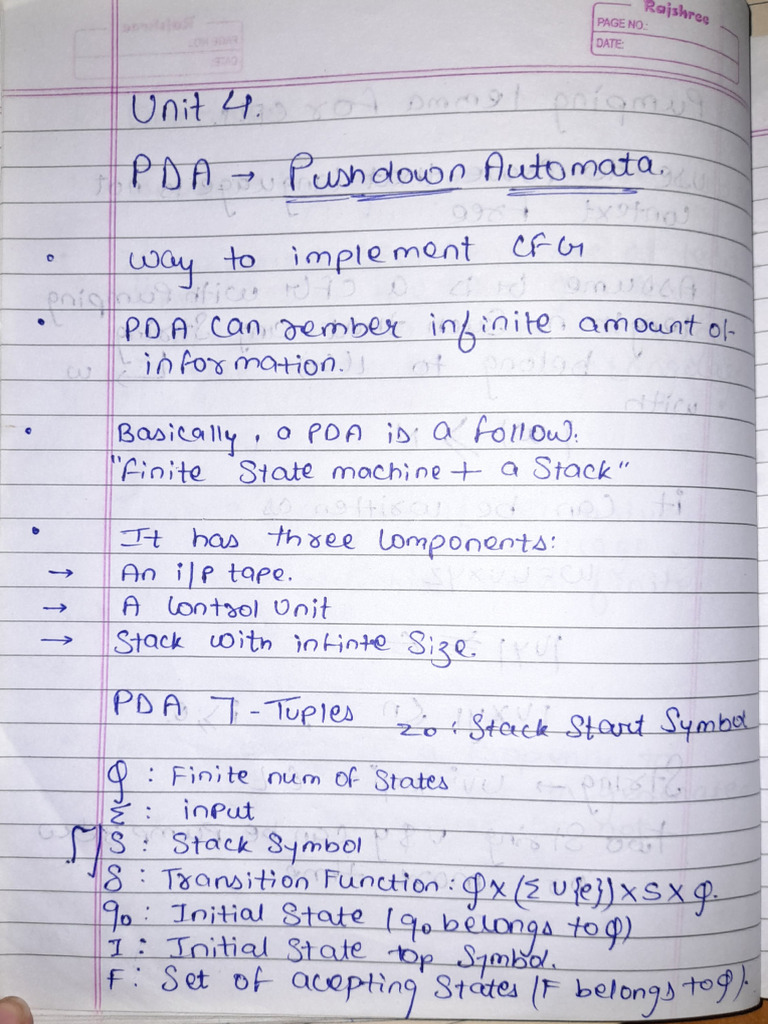 Rajshree
PAGE NO.:
DATE:
Unit 4.
PDA → Pushdown Automata.
• way to implement CFG
• PDA can rember infinite amount of
information.
• Basically, a PDA is a follow:
"finite State machine + a Stack"
• It has three components:
→ An i/p tape.
→ A Control Unit
→ Stack with infinte Size.
PDA 7-Tuples
z0 : Stack Start Symbol
Q : Finite num of States
Σ : input
Γ S : Stack Symbol
δ : Transition Function : Q x (Σ ∪ {e}) x S x Q.
q0 : Initial State (q0 belongs to Q)
I : Initial State top Symbol.
F : Set of acepting States (F belongs to Q).